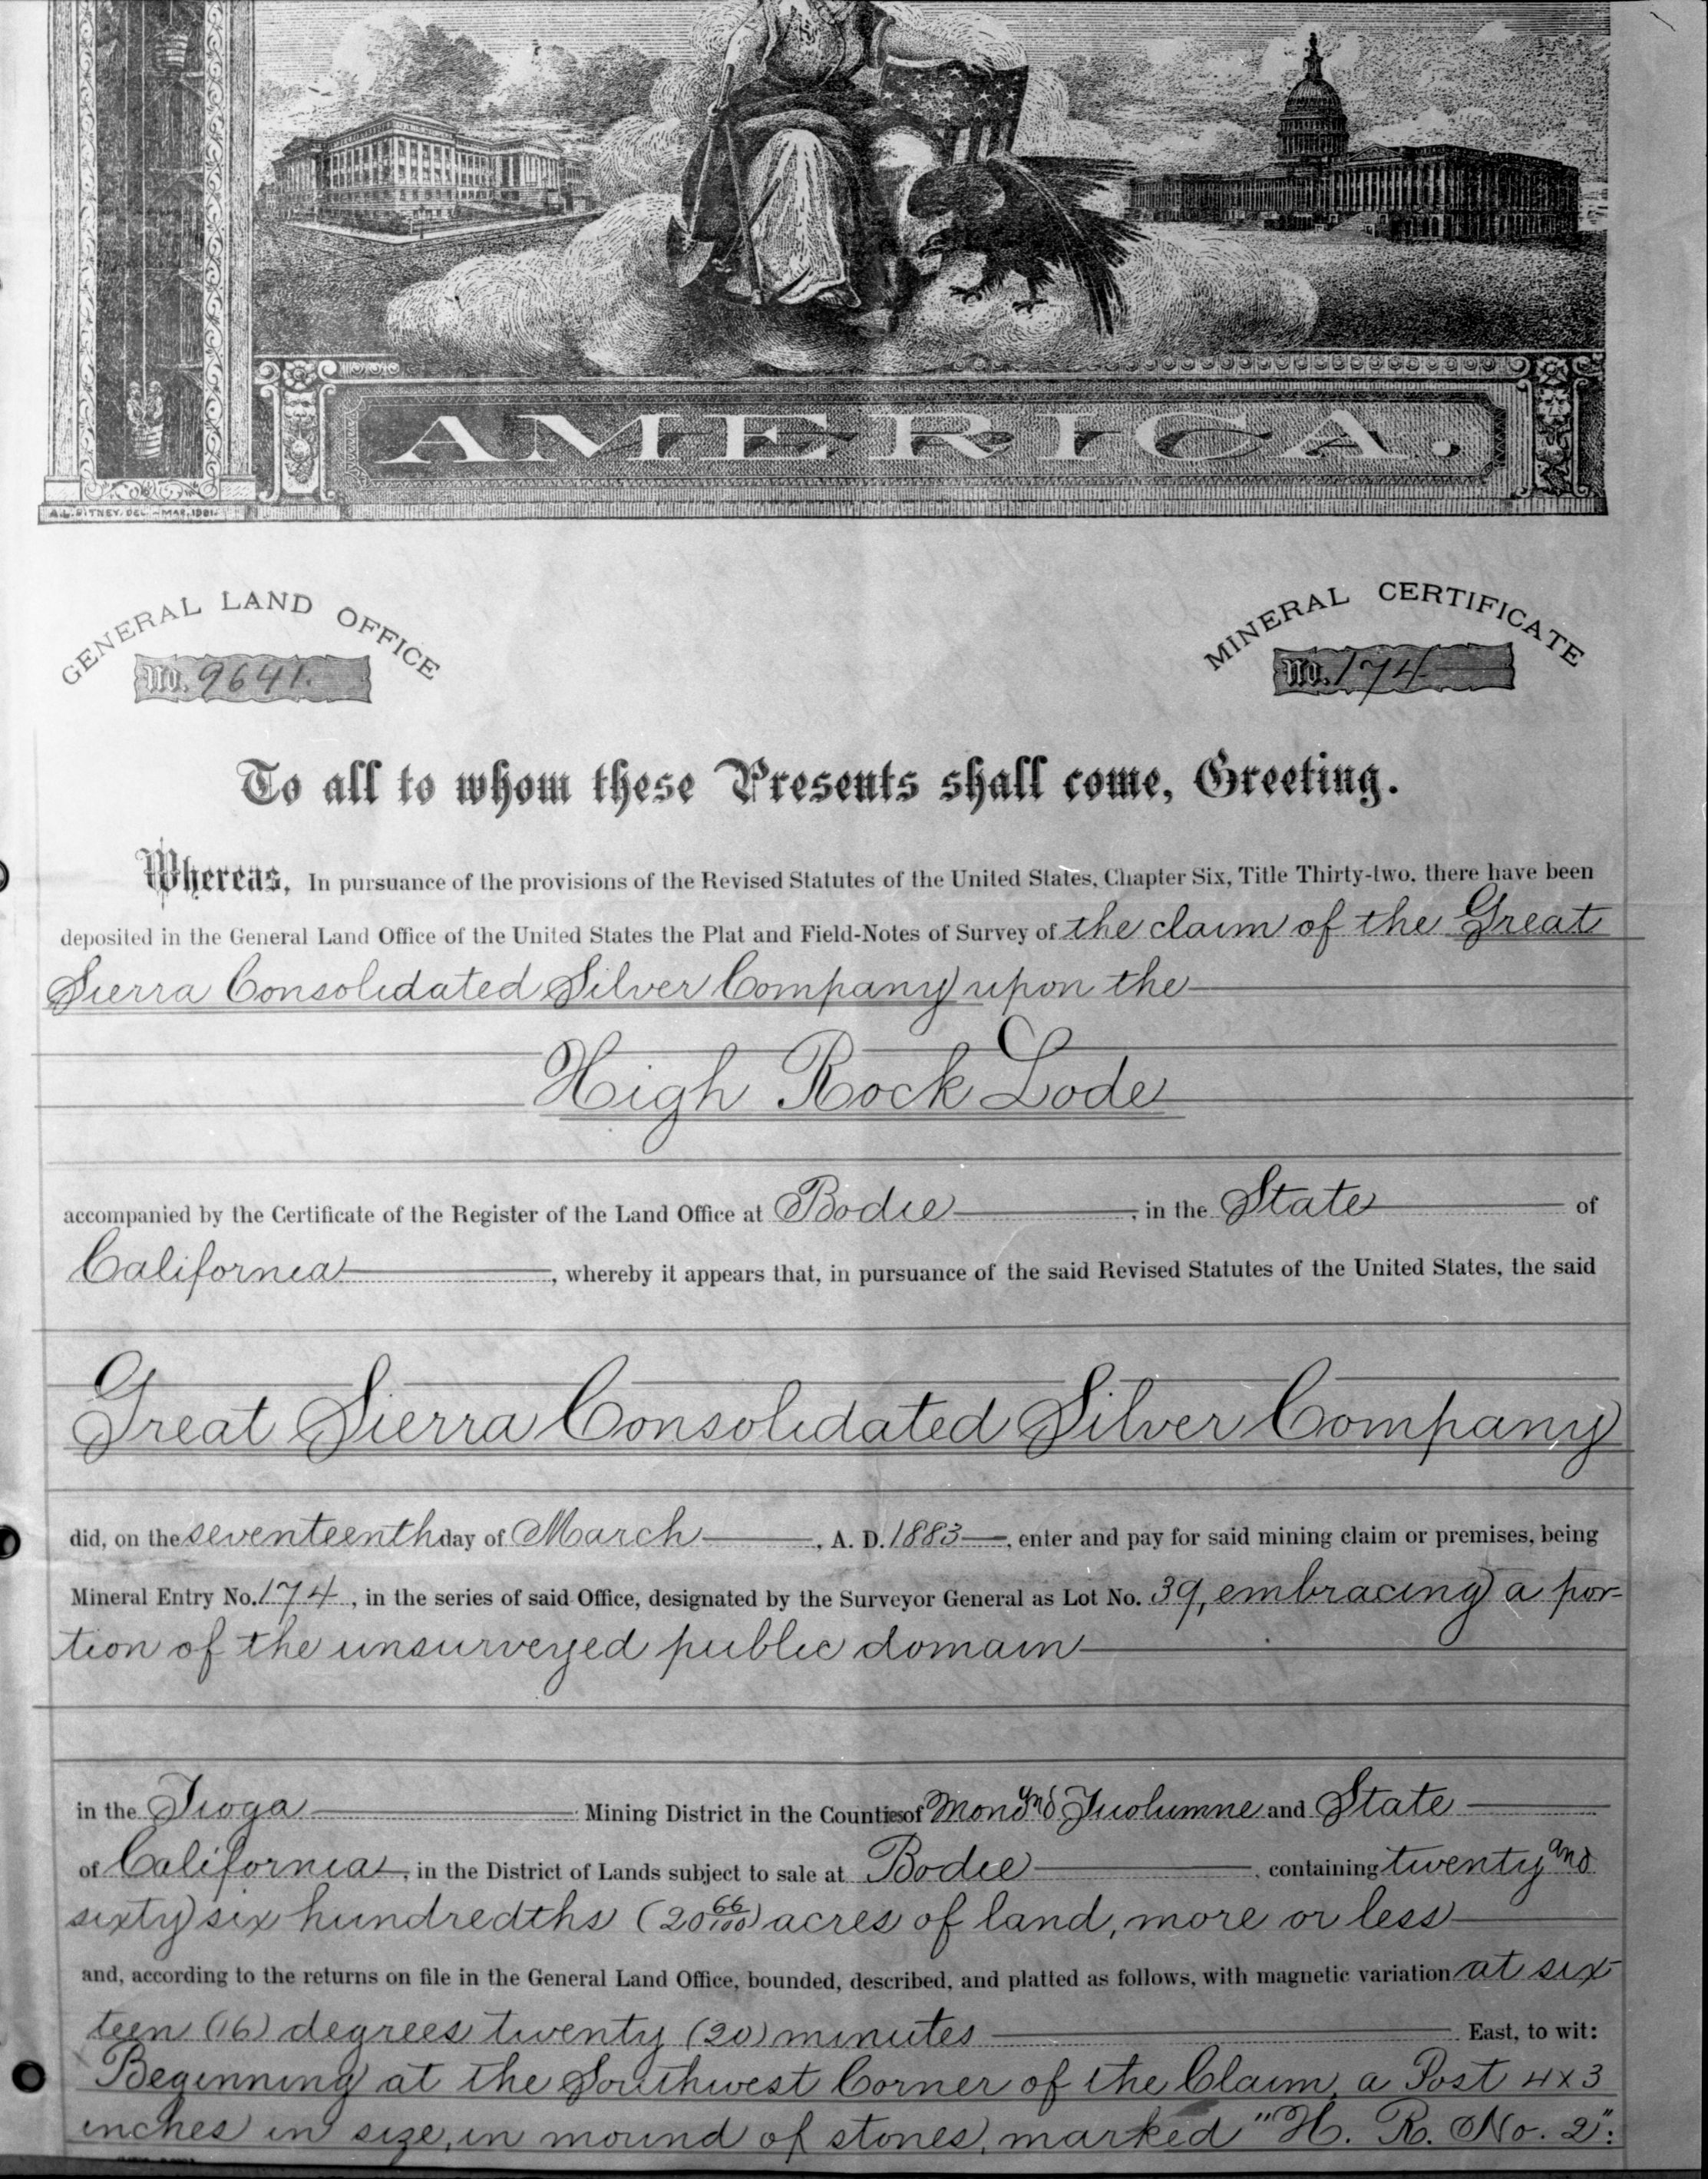 AMERICA.
A.L. PITNEY. DEL. - MAR, 1881.
GENERAL LAND OFFICE
No. 9641.
MINERAL CERTIFICATE
No. 174
To all to whom these Presents shall come, Greeting.
Whereas, In pursuance of the provisions of the Revised Statutes of the United States, Chapter Six, Title Thirty-two, there have been
deposited in the General Land Office of the United States the Plat and Field-Notes of Survey of the claim of the Great
Sierra Consolidated Silver Company upon the
High Rock Lode
accompanied by the Certificate of the Register of the Land Office at Bodie, in the State of
California, whereby it appears that, in pursuance of the said Revised Statutes of the United States, the said
Great Sierra Consolidated Silver Company
did, on the seventeenth day of March, A. D. 1883, enter and pay for said mining claim or premises, being
Mineral Entry No. 174, in the series of said Office, designated by the Surveyor General as Lot No. 39, embracing a por-
tion of the unsurveyed public domain
in the Tioga Mining District in the Counties of Mono and Tuolumne and State
of California, in the District of Lands subject to sale at Bodie, containing twenty and
sixty six hundredths (20 66/100) acres of land, more or less
and, according to the returns on file in the General Land Office, bounded, described, and platted as follows, with magnetic variation at six-
teen (16) degrees twenty (20) minutes East, to wit:
Beginning at the Southwest Corner of the Claim, a Post 4x3
inches in size, in mound of stones, marked "H. R. No. 2":